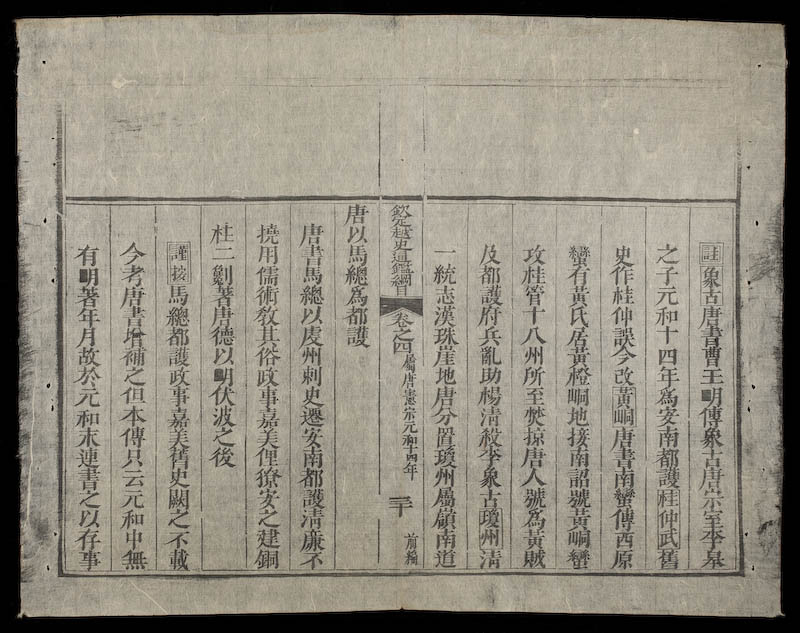 註象古唐書曹王明傳象古唐宗室李臯
之子元和十四年爲安南都護桂仲武舊
史作桂仲誤今改黃峒唐書南蠻傳西原
蠻有黃氏居黃橙峒地接南詔號黃峒蠻
攻桂管十八州所至焚掠唐人號爲黃賊
及都護府兵亂助楊清殺李象古瓊州清
一統志漢珠崖地唐分置瓊州屬嶺南道
欽定越史通鑑綱目 卷之四 屬唐憲宗元和十四年 三十 前編
唐以馬總爲都護
唐書馬總以虔州刺史遷安南都護清廉不
撓用儒術敎其俗政事嘉美俚獠安之建銅
柱二劖著唐德以明伏波之後
謹按馬總都護政事嘉美舊史闕之不載
今考唐書增補之但本傳只云元和中無
有明著年月故於元和末連書之以存事